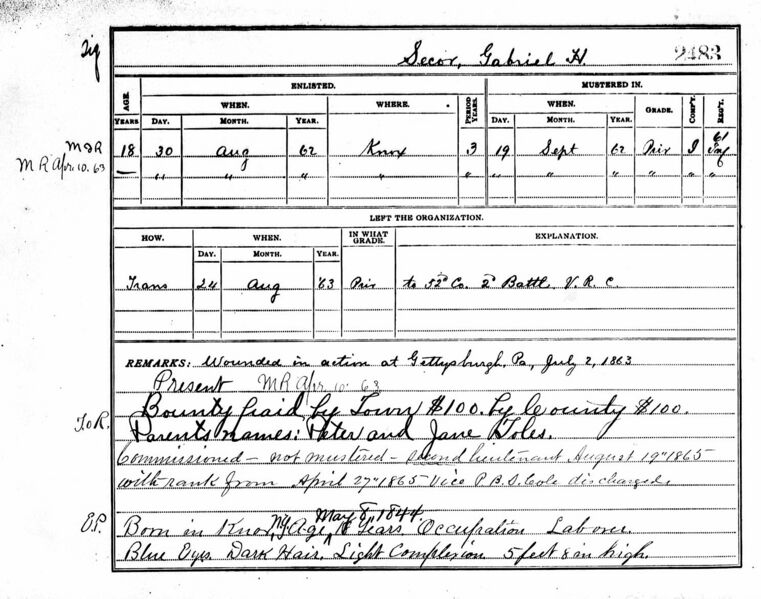 Sig
Secor, Gabriel H. 2483
AGE. ENLISTED. MUSTERED IN.
YEARS WHEN. WHERE. PERIOD YEARS. WHEN. GRADE. COMP'Y. REG'T.
DAY. MONTH. YEAR. DAY. MONTH. YEAR.
M&R 18 30 Aug 62 Knox 3 19 Sept 62 Priv I 61 Inf
M R Apr. 10. 63 — " " " " " " " " " "
LEFT THE ORGANIZATION.
HOW. WHEN. IN WHAT GRADE. EXPLANATION.
DAY. MONTH. YEAR.
Trans 24 Aug '63 Priv to 52d Co. 2d Battl. V. R. C.
REMARKS: Wounded in action at Gettysburgh, Pa., July 2, 1863
Present M R Apr. 10. 63
T o R. Bounty paid by Town $100. by County $100.
Parents names: Peter and Jane
Commissioned – not mustered – second lieutenant August 19" 1865
with rank from April 27" 1865 Vice P. B. S. Cole discharged.
May 8, 1844
E.P. Born in Knox, NY, Age 18 Years. Occupation Laborer.
Blue Eyes. Dark Hair, Light Complexion 5 feet 8 in high.